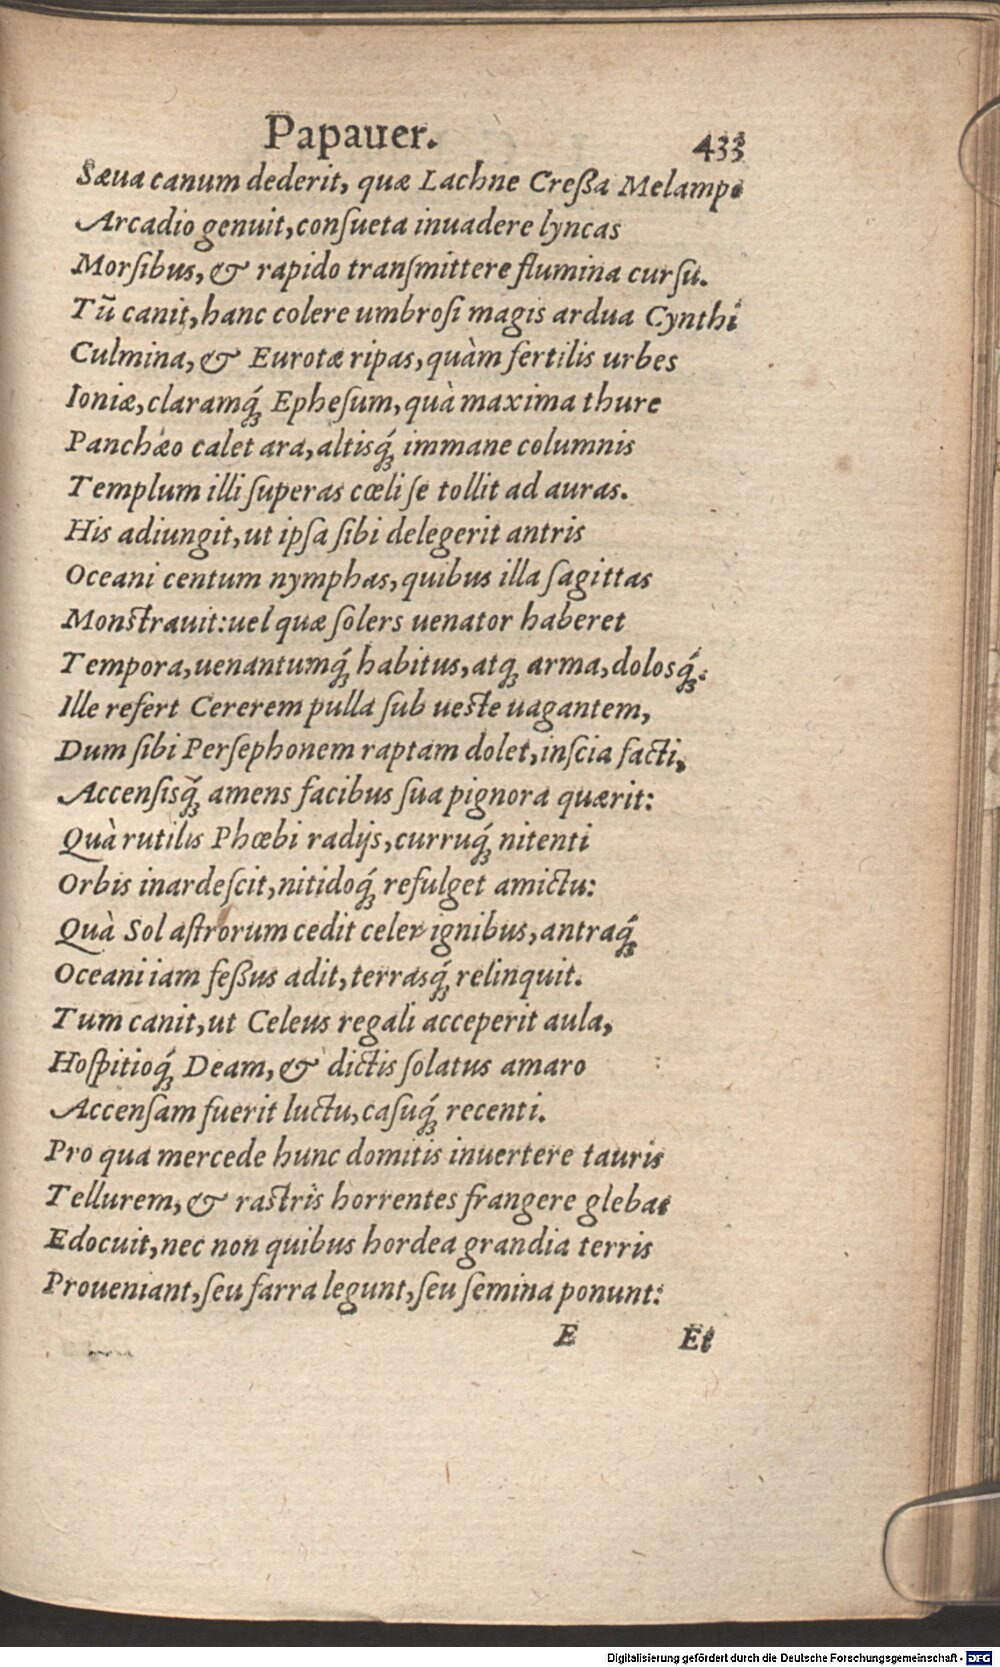 Papauer. 433
Sæua canum dederit, quæ Lachne Creſſa Melampo
Arcadio genuit, conſueta inuadere lyncas
Morſibus, & rapido tranſmittere flumina curſu.
Tū canit, hanc colere umbroſi magis ardua Cynthi
Culmina, & Eurotæ ripas, quàm fertilis urbes
Ioniæ, claramq́; Epheſum, quà maxima thure
Panchæo calet ara, altisq́; immane columnis
Templum illi ſuperas cœli ſe tollit ad auras.
His adiungit, ut ipſa ſibi delegerit antris
Oceani centum nymphas, quibus illa ſagittas
Monſtrauit: uel quæ ſolers uenator haberet
Tempora, uenantumq́; habitus, atq; arma, dolosq́;.
Ille refert Cererem pulla ſub ueſte uagantem,
Dum ſibi Perſephonem raptam dolet, inſcia facti,
Accenſisq́; amens facibus ſua pignora quærit:
Quà rutilis Phœbi radijs, curruq́; nitenti
Orbis inardeſcit, nitidoq́; refulget amictu:
Quà Sol aſtrorum cedit celer ignibus, antraq́;
Oceani iam feſſus adit, terrasq́; relinquit.
Tum canit, ut Celeus regali acceperit aula,
Hoſpitioq́; Deam, & dictis ſolatus amaro
Accenſam fuerit luctu, caſuq́; recenti.
Pro qua mercede hunc domitis inuertere tauris
Tellurem, & raſtris horrentes frangere glebas
Edocuit, nec non quibus hordea grandia terris
Proueniant, ſeu farra legunt, ſeu ſemina ponunt:
E Et
Digitalisierung gefördert durch die Deutsche Forschungsgemeinschaft - DFG